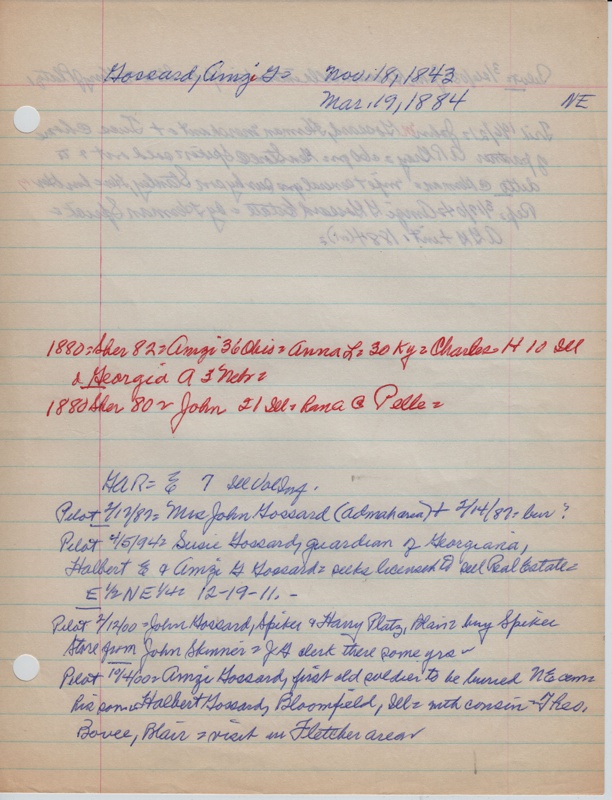 Gossard, Amzi G = Nov. 18, 1843
Mar. 19, 1884 NE
1880 = Sher 82 = Amzi 36 Ohio = Anna L = 30 Ky = Charles H 10 Ill
& Georgia A 3 Nebr =
1880 Sher 80 = John 21 Ill = @ Pelle =
GAR = E 7 Ill Vol Inf.
Pilot 2/17/87 = Mrs John Gossard (Admah area) + 2/14/87 = bur ?
Pilot 4/5/94 = Susie Gossard, guardian of Georgiana,
Halbert E & Amzi G Gossard = seeks license to sell Real Estate =
E 1/2 NE 1/4 = 12-19-11. -
Pilot 2/12/00 = John Gossard, Spiker & Harry Platz, Blair = buy Spiker
Store from John Skinner = JG clerk there some yrs -
Pilot 10/4/00 = Amzi Gossard, first old soldier to be buried NE cem =
his son = Halbert Gossard, Bloomfield, Ill = with cousin = Theo.
Bovee, Blair = visit in Fletcher area -